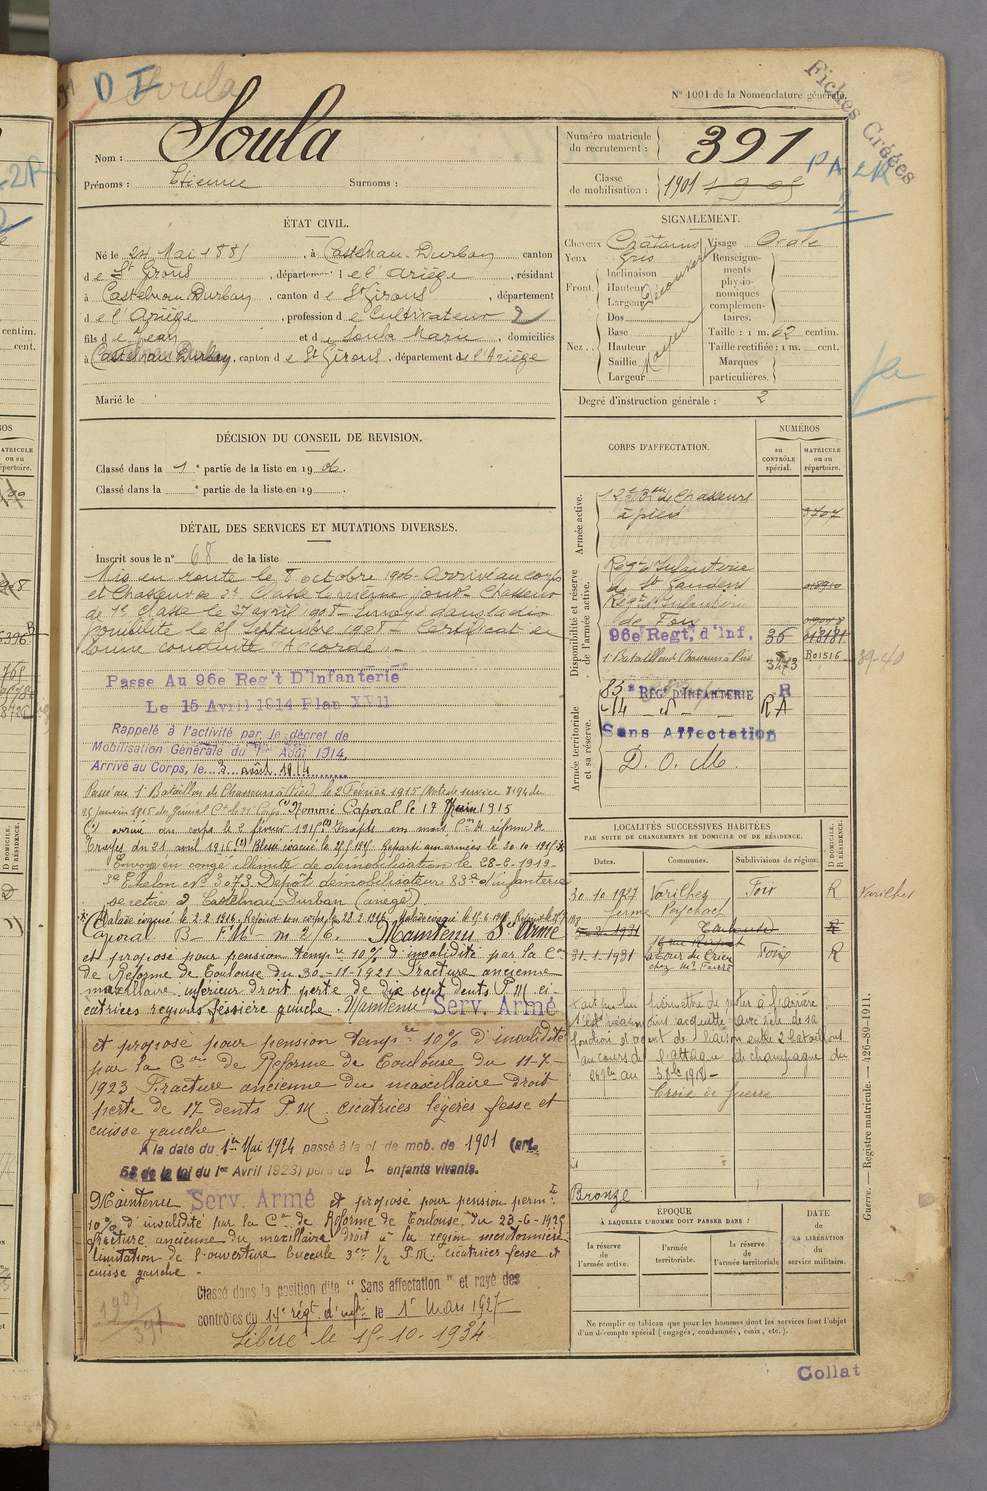 D I Soula
Fiches Créées
N° 1001 de la Nomenclature générale.
Nom : Soula
Prénoms : Etienne Surnoms :
Numéro matricule du recrutement : 391
Classe de mobilisation : 1901 1905
PA 2R
2
ÉTAT CIVIL.
Né le 24 Mai 1885, à Castelnau-Durban canton
de St Girons, département de l'Ariège, résidant
à Castelnau-Durban, canton de St Girons, département
de l'Ariège, profession de Cultivateur 2
fils de Jean et de Soula Marie, domiciliés
à Castelnau Durban, canton de St Girons, département de l'Ariège
Marié le
SIGNALEMENT.
Cheveux Châtains Visage Ovale
Yeux Gris
Front. Inclinaison Hauteur Largeur Découvert
Nez. Dos Base Hauteur Saillie Largeur Moyen
Renseignements physionomiques complémentaires.
Taille : 1 m. 62 centim.
Taille rectifiée : 1 m. cent.
Marques particulières.
Degré d'instruction générale : 2
DÉCISION DU CONSEIL DE REVISION.
Classé dans la 1e partie de la liste en 1906.
Classé dans la e partie de la liste en 19
DÉTAIL DES SERVICES ET MUTATIONS DIVERSES.
Inscrit sous le n° 68 de la liste
Mis en route le 8 octobre 1906. Arrivé au corps
et Chasseur de 2e Classe le même jour. Chasseur
de 1e Classe le 27 avril 1908. Envoyé dans la dis
ponibilité le 25 Septembre 1908. Certificat de
bonne conduite "Accordé".
Passe Au 96e Reg't D'Infanterie
Le 15 Avril 1914 Plan XVII
Rappelé à l'activité par le décret de
Mobilisation Générale du 1er Août 1914,
Arrivé au Corps, le 3 août 1914
Passé au 1e Bataillon de Chasseurs à Pied le 2 Février 1915 (Note de service 8194 du
25 janvier 1915 du Général Ct le 21e Corps) Nommé Caporal le 17 Juin 1915
(1) arrivé au corps le 2 février 1915
Troyes du 21 avril 1915 (2) Blessé évacué le 25 9 1915 Reparti aux armées le 30.10.1915
Envoyé en congé illimité de démobilisation le 28-2-1919.
3e Echelon N° 3073 Dépôt démobilisateur 83e d'infanterie
se retire à Castelnau Durban (ariège).
Malade évacué le 2.2.1916. Rejoint son corps le 22.2.1916
Caporal B - F M - m 2/6. Maintenu Sce Armé
et proposé pour pension temp.re 10% d'invalidité par la Con
de Réforme de Toulouse du 30-11-1921 Fracture ancienne
maxillaire inférieur droit perte de dix sept dents P.M. ci-
catrices région fessière gauche. Maintenu Serv. Armé
et proposé pour pension temp.re 10% d'invalidité
par la Con de Réforme de Toulouse du 11-7-
1923 Fracture ancienne du maxillaire droit
perte de 17 dents P.M. cicatrices légères fesse et
cuisse gauche
A la date du 1er Mai 1924 passé à la cl. de mob. de 1901 (art.
58 de la loi du 1er Avril 1923) père de 2 enfants vivants.
Maintenu Serv. Armé et proposé pour pension perm.te
10% d'invalidité par la Con de Réforme de Toulouse du 23-6-1925
fracture ancienne du maxillaire droit à la région mentonnière
limitation de l'ouverture buccale 3cm ½ P.M. cicatrices fesse et
cuisse gauche.
Classé dans la position dite "Sans affectation" et rayé des
contrôles du 14e régt d'infie le 1er Mars 1927
Libéré le 15-10-1934
1905
391
CORPS D'AFFECTATION.
NUMÉROS
au CONTRÔLE spécial.
MATRICULE ou au répertoire.
Armée active.
12e Bon de Chasseurs
à pied 3707
Disponibilité et réserve de l'armée active.
Régt d'Infanterie
de St Gaudens
Régt d'Infanterie
de Foix
96e Regt, d'Inf. 36
1er Bataillon Chasseurs à Pied 3473 R01516 39-40
Armée territoriale et sa réserve.
83e REGt D'INFANTERIE R
14 - d° - RA
Sans Affectation
D. O. M.
LOCALITÉS SUCCESSIVES HABITÉES
PAR SUITE DE CHANGEMENTS DE DOMICILE OU DE RÉSIDENCE.
Dates. Communes. Subdivisions de région.
D DOMICILE. R RÉSIDENCE.
30.10.1927 Varilhes Foix R Varilhes
ferme Peychach
Toulouse
31-1-1931 Foix R
S'est néanmoins acquitté avec zèle de sa
fonction d'agent de liaison entre 2 bataillons
au cours de l'attaque de champagne du
Croix de Guerre
Bronze
ÉPOQUE
À LAQUELLE L'HOMME DOIT PASSER DANS :
la réserve de l'armée active.
l'armée territoriale.
la réserve de l'armée territoriale
DATE de LA LIBÉRATION du service militaire.
Ne remplir ce tableau que pour les hommes dont les services font l'objet
d'un décompte spécial (engagés, condamnés, omis, etc.).
Guerre. — Registre matricule. — 426-89-1911.
Collat